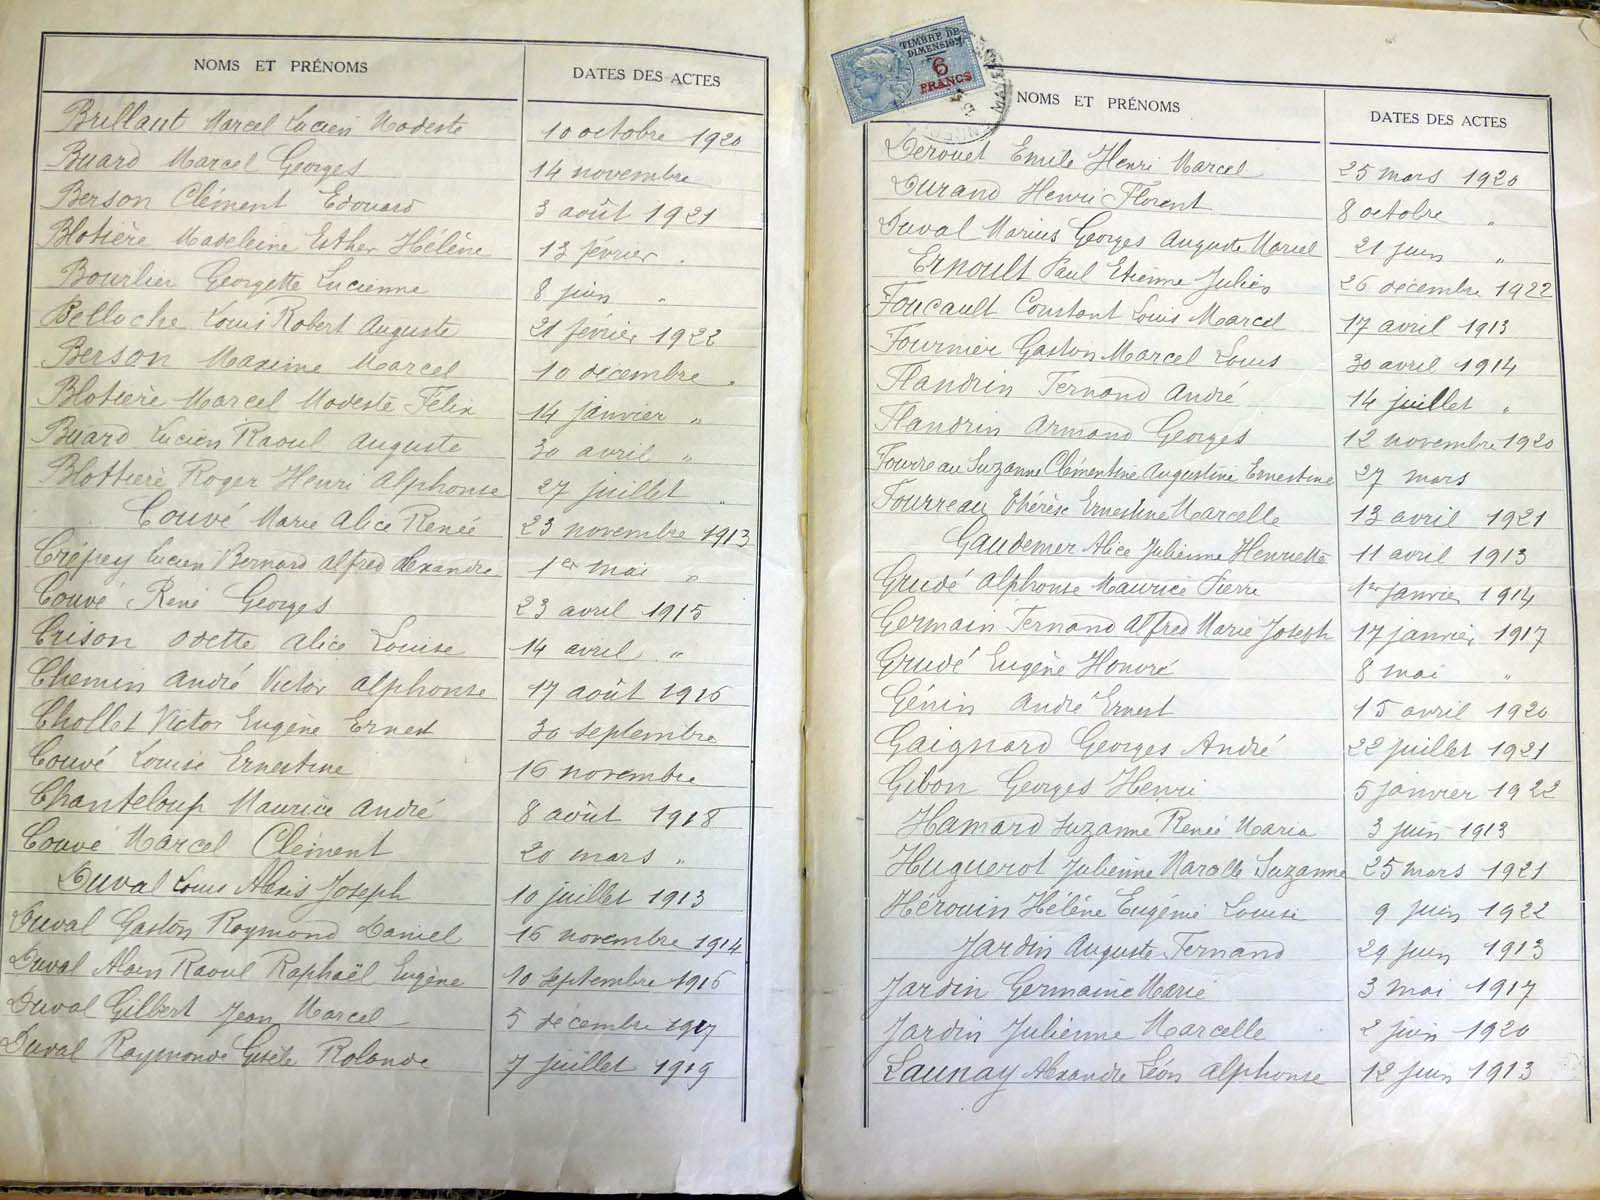 NOMS ET PRÉNOMS DATES DES ACTES
Brillant Marcel Lucien Modeste 10 octobre 1920
Buard Marcel Georges 14 novembre
Berson Clément Edouard 3 août 1921
Blotière Madeleine Esther Hélène 13 février "
Bourlier Georgette Lucienne 8 juin "
Belloche Louis Robert Auguste 21 février 1922
Berson Maxime Marcel 10 décembre "
Blotière Marcel Modeste Félix 14 janvier "
Buard Lucien Raoul Auguste 30 avril "
Blottière Roger Henri Alphonse 27 juillet "
Couvé Marie Alice Renée 23 novembre 1913
Crépey Lucien Bernard Alfred Alexandre 1er mai "
Couvé René Georges 23 avril 1915
Crison Odette Alice Louise 14 avril "
Chemin André Victor Alphonse 17 août 1916
Chollet Victor Eugène Ernest 30 septembre
Couvé Louise Ernestine 16 novembre
Chanteloup Maurice André 8 août 1918
Couvé Marcel Clément 20 mars "
Duval Louis Alexis Joseph 10 juillet 1913
Duval Gaston Raymond Daniel 16 novembre 1914
Duval Alain Raoul Raphaël Eugène 10 septembre 1916
Duval Gilbert Jean Marcel 5 décembre 1917
Duval Raymonde Gisèle Rolande 7 juillet 1919
TIMBRE DE
DIMENSION
6
FRANCS
NOMS ET PRÉNOMS DATES DES ACTES
Derouet Emile Henri Marcel 25 mars 1920
Durand Henri Florent 8 octobre "
Duval Marius Georges Auguste Marcel 21 juin "
Ernoult Paul Etienne Julien 26 décembre 1922
Foucault Constant Louis Marcel 17 avril 1913
Fournier Gaston Marcel Louis 30 avril 1914
Flandrin Fernand André 14 juillet "
Flandrin Armand Georges 12 novembre 1920
Fourreau Suzanne Clémentine Augustine Ernestine 27 mars
Fourreau Thérèse Ernestine Marcelle 13 avril 1921
Gaudemer Alice Julienne Henriette 11 avril 1913
Grudé Alphonse Maurice Pierre 1er janvier 1914
Germain Fernand Alfred Marie Joseph 17 janvier 1917
Grudé Eugène Honoré 8 mai "
Génin André Ernest 15 avril 1920
Gaignard Georges André 22 juillet 1921
Gibon Georges Henri 5 janvier 1922
Hamard Suzanne Renée Maria 3 juin 1913
Huguerot Julienne Marcelle Suzanne 25 mars 1921
Hérouin Hélène Eugénie Louise 9 juin 1922
Jardin Auguste Fernand 29 juin 1913
Jardin Germaine Marie 3 mai 1917
Jardin Julienne Marcelle 2 juin 1920
Launay Alexandre Léon Alphonse 12 juin 1913